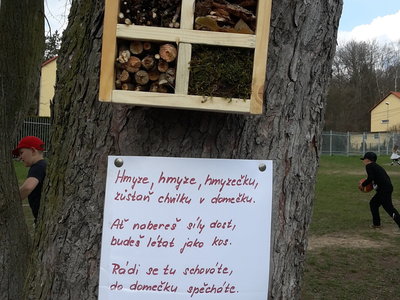 Hmyze, hmyze, hmyzečku,
zůstaň chvilku v domečku.
Ať nabereš síly dost,
budeš létat jako kos.
Rádi se tu schováte,
do domečku spěcháte.